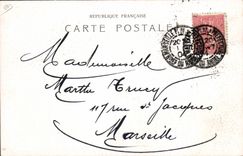 RÉPUBLIQUE FRANÇAISE
CARTE POSTALE
Mademoiselle
Marthe Trucy
117 rue St Jacques
Marseille